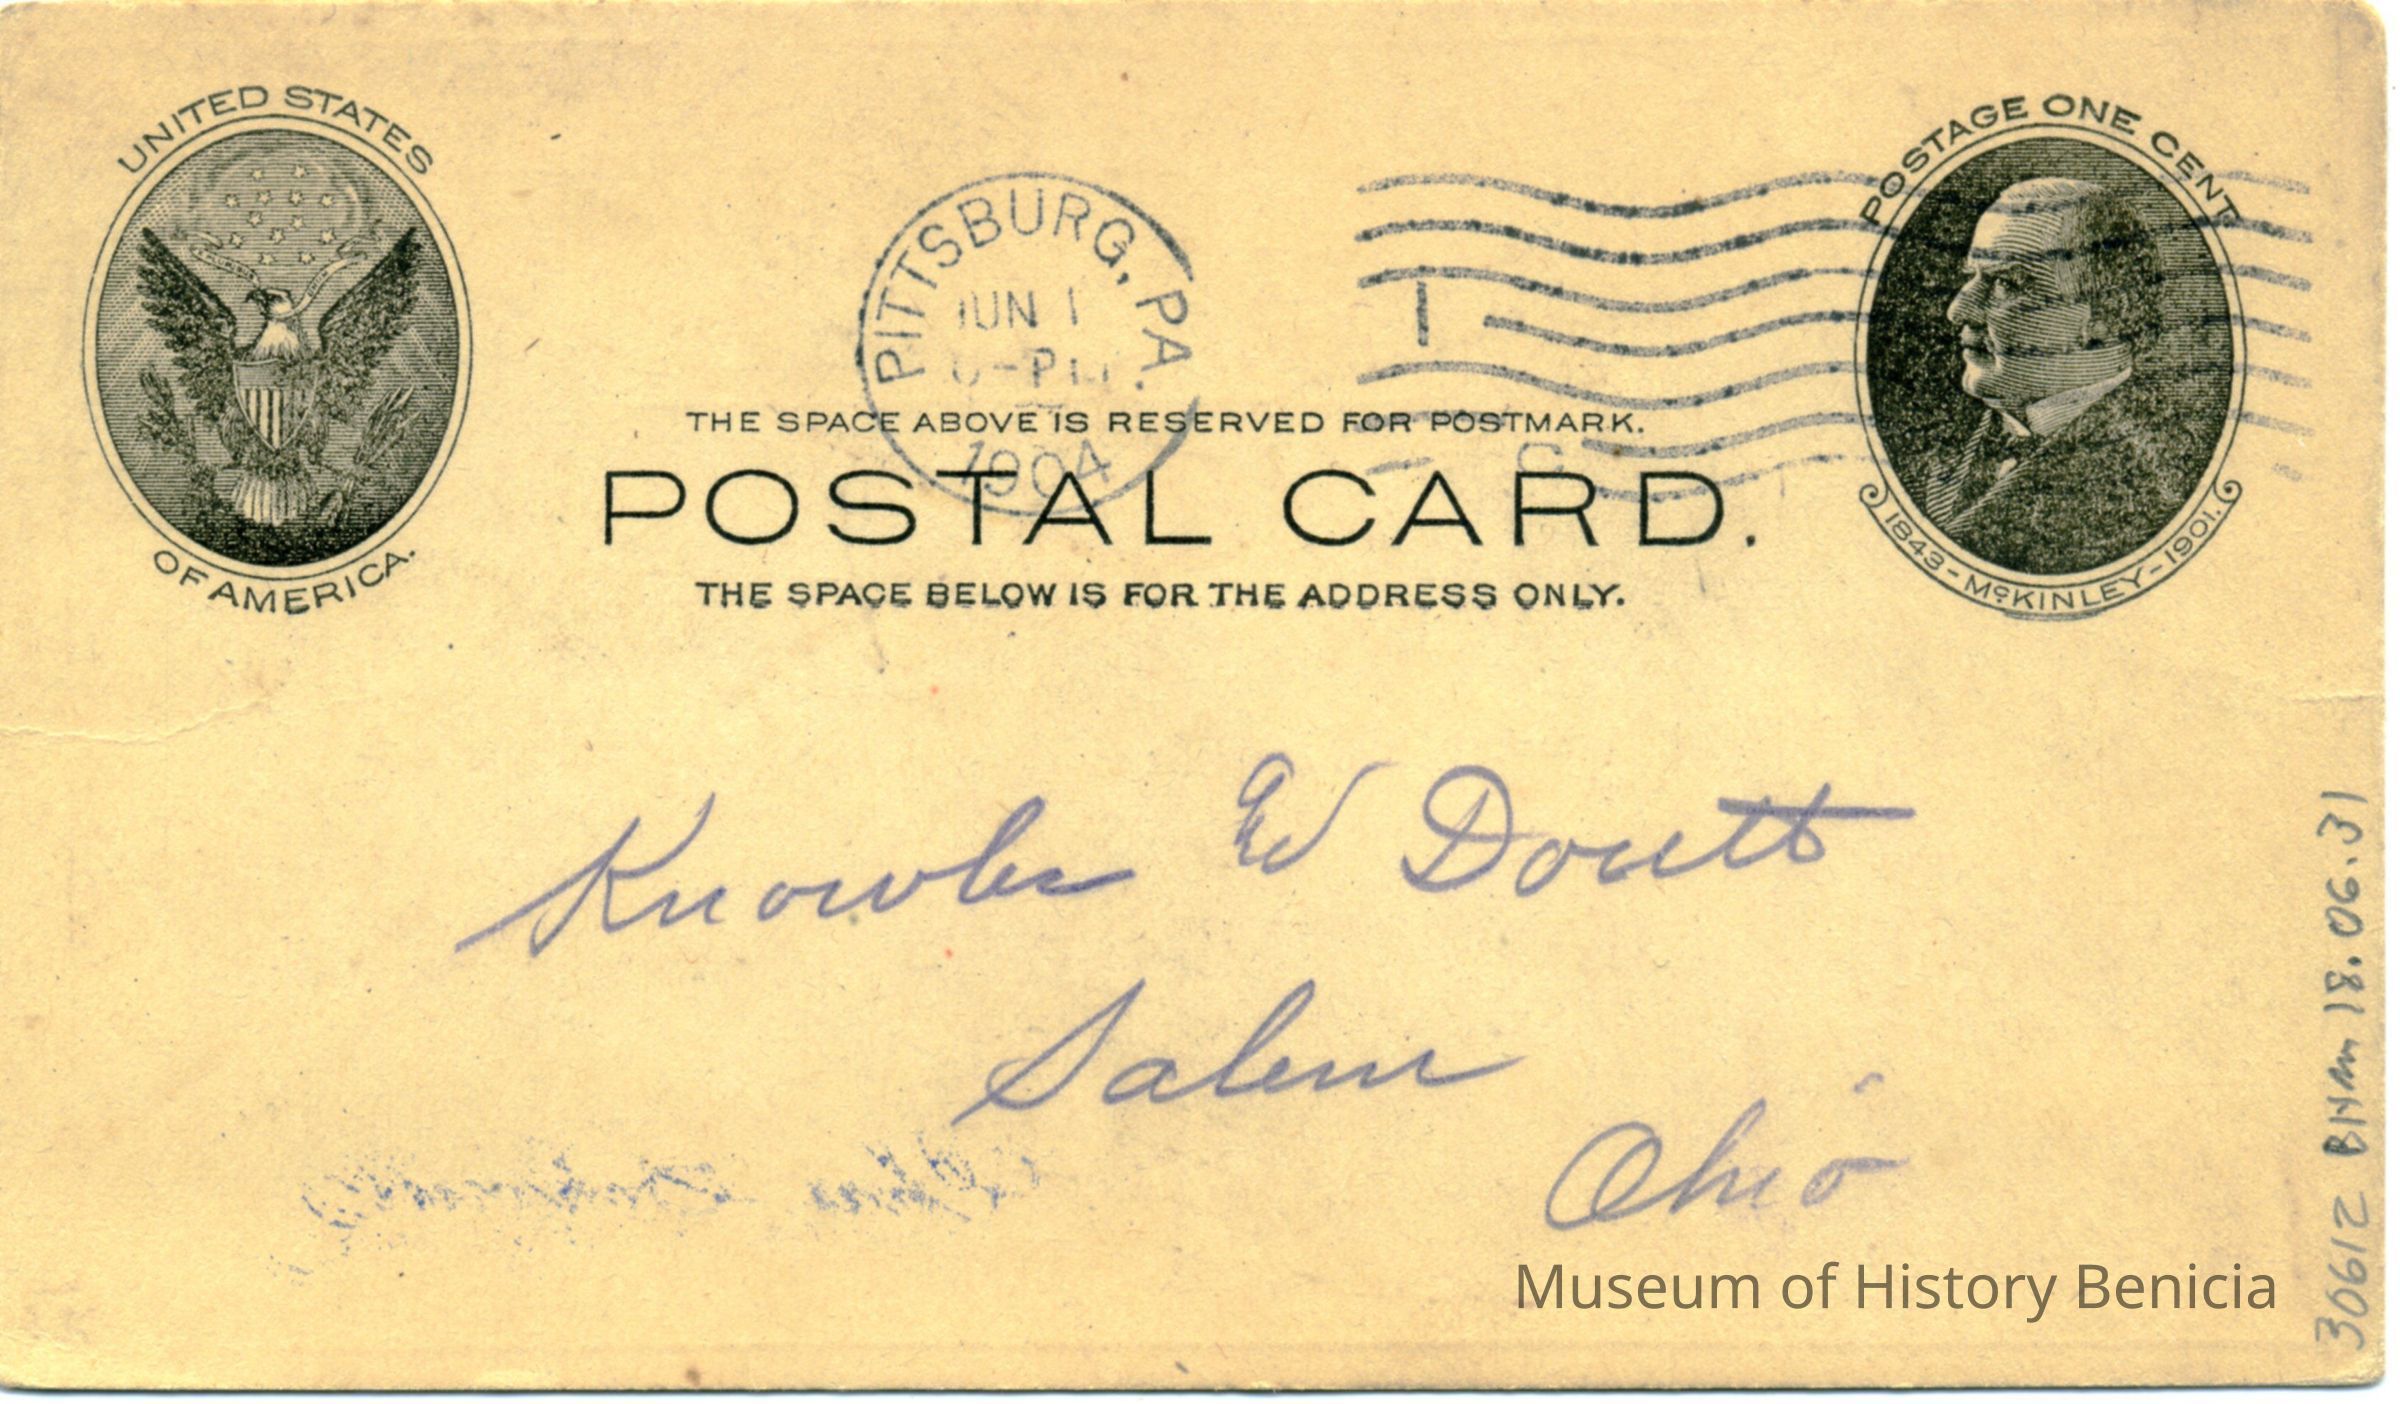 UNITED STATES
OF AMERICA.
PITTSBURG, PA.
JUN 1
1904
1
POSTAGE ONE CENT
1843-McKINLEY-1901.
THE SPACE ABOVE IS RESERVED FOR POSTMARK.
POSTAL CARD.
THE SPACE BELOW IS FOR THE ADDRESS ONLY.
Knowles W Doutt
Salem
Ohio
Museum of History Benicia
30612 BHM 18.06.31